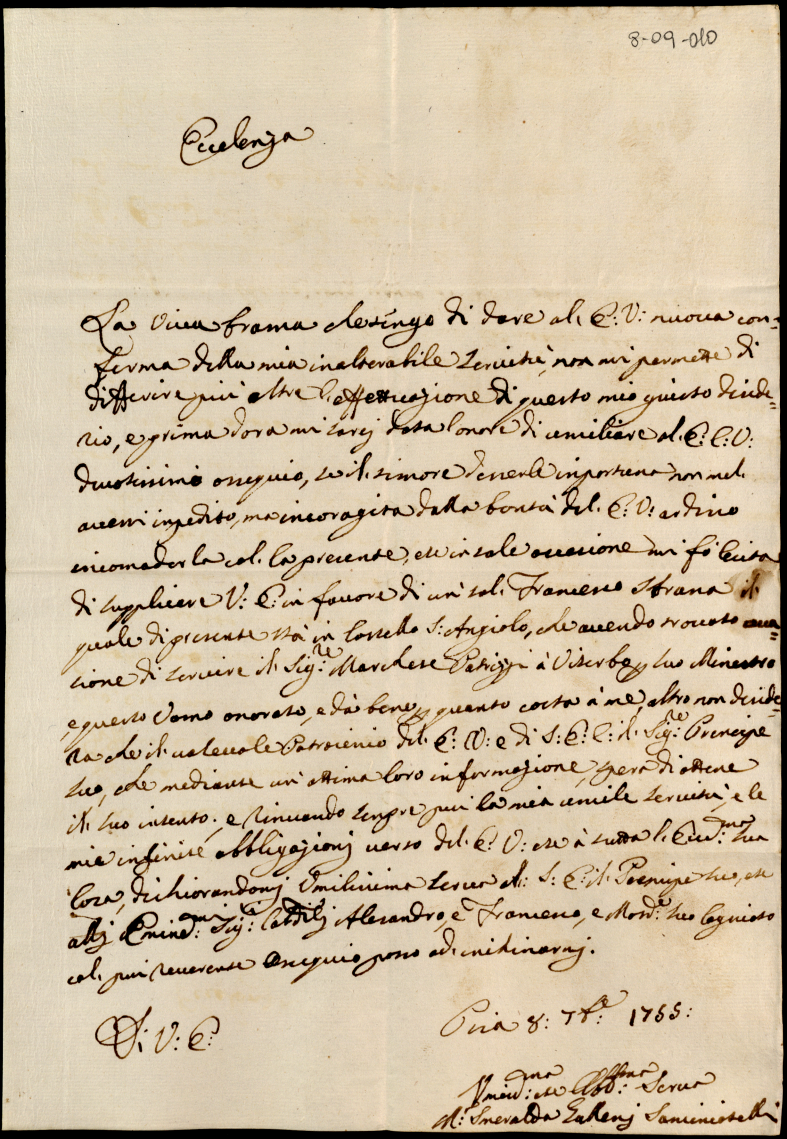 8-09-010
Eccelenza
La viva brama che tengo di dare al. E: V: nuova con=
ferma della mia inalterabile servitù, non mi permette di
differire più oltre l'effettuazione di questo mio giusto deside=
rio, e prima d'ora mi sarej data l'onore di umiliare al. E: E: V:
divotissimo ossequio, se il. timore d'esserle inportuna non mel.
avessi inpedito, ma incoragita dalla bontà del. E: V: ardisco
incomodarla col. la presente, e in tale occasione mi fò lecita
di supplicare V: E: in favore di un tal. Francesco Strana il.
quale di presente stà in Castello S: Angiolo, che avendo trovato occa=
sione di servire il. Sig:re Marchese Patrizzi à Viterbo p suo Ministro
e questo Uomo onorato, e dà bene p quanto costa à me, altro non deside=
ra che il. valevole Patrocinio del. E: V: e di S: E: E: il. Sig:re Principe
suo, che mediante un'ottima loro informazione, spera di ottene
il. suo intento; e rinuando senpre più la mia umile servitù, e le
mie infinite obbligazionj verso del. E: V: che à tutta l. Ecc:ma sua
Casa, dichiarandomj Umilissima serva di S: E: il. Prencipe suo, che
allj Emined:mi Sig:ri Cardilj Alesandro, e Francesco, e Mons:re suo Cogniato
col. più reverente Ossequio posso ad inchinarmj.
D: V: E:
Pisa 8: 7b:e 1755:
Umid:ma che Obb:ma Serva
M: Smeralda Gallenj Saminiatelli